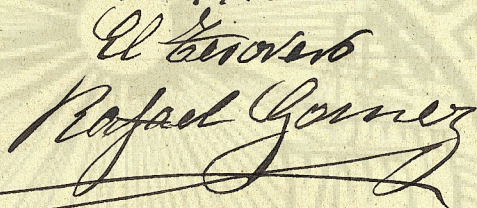 El Tesorero
Rafael Gomez